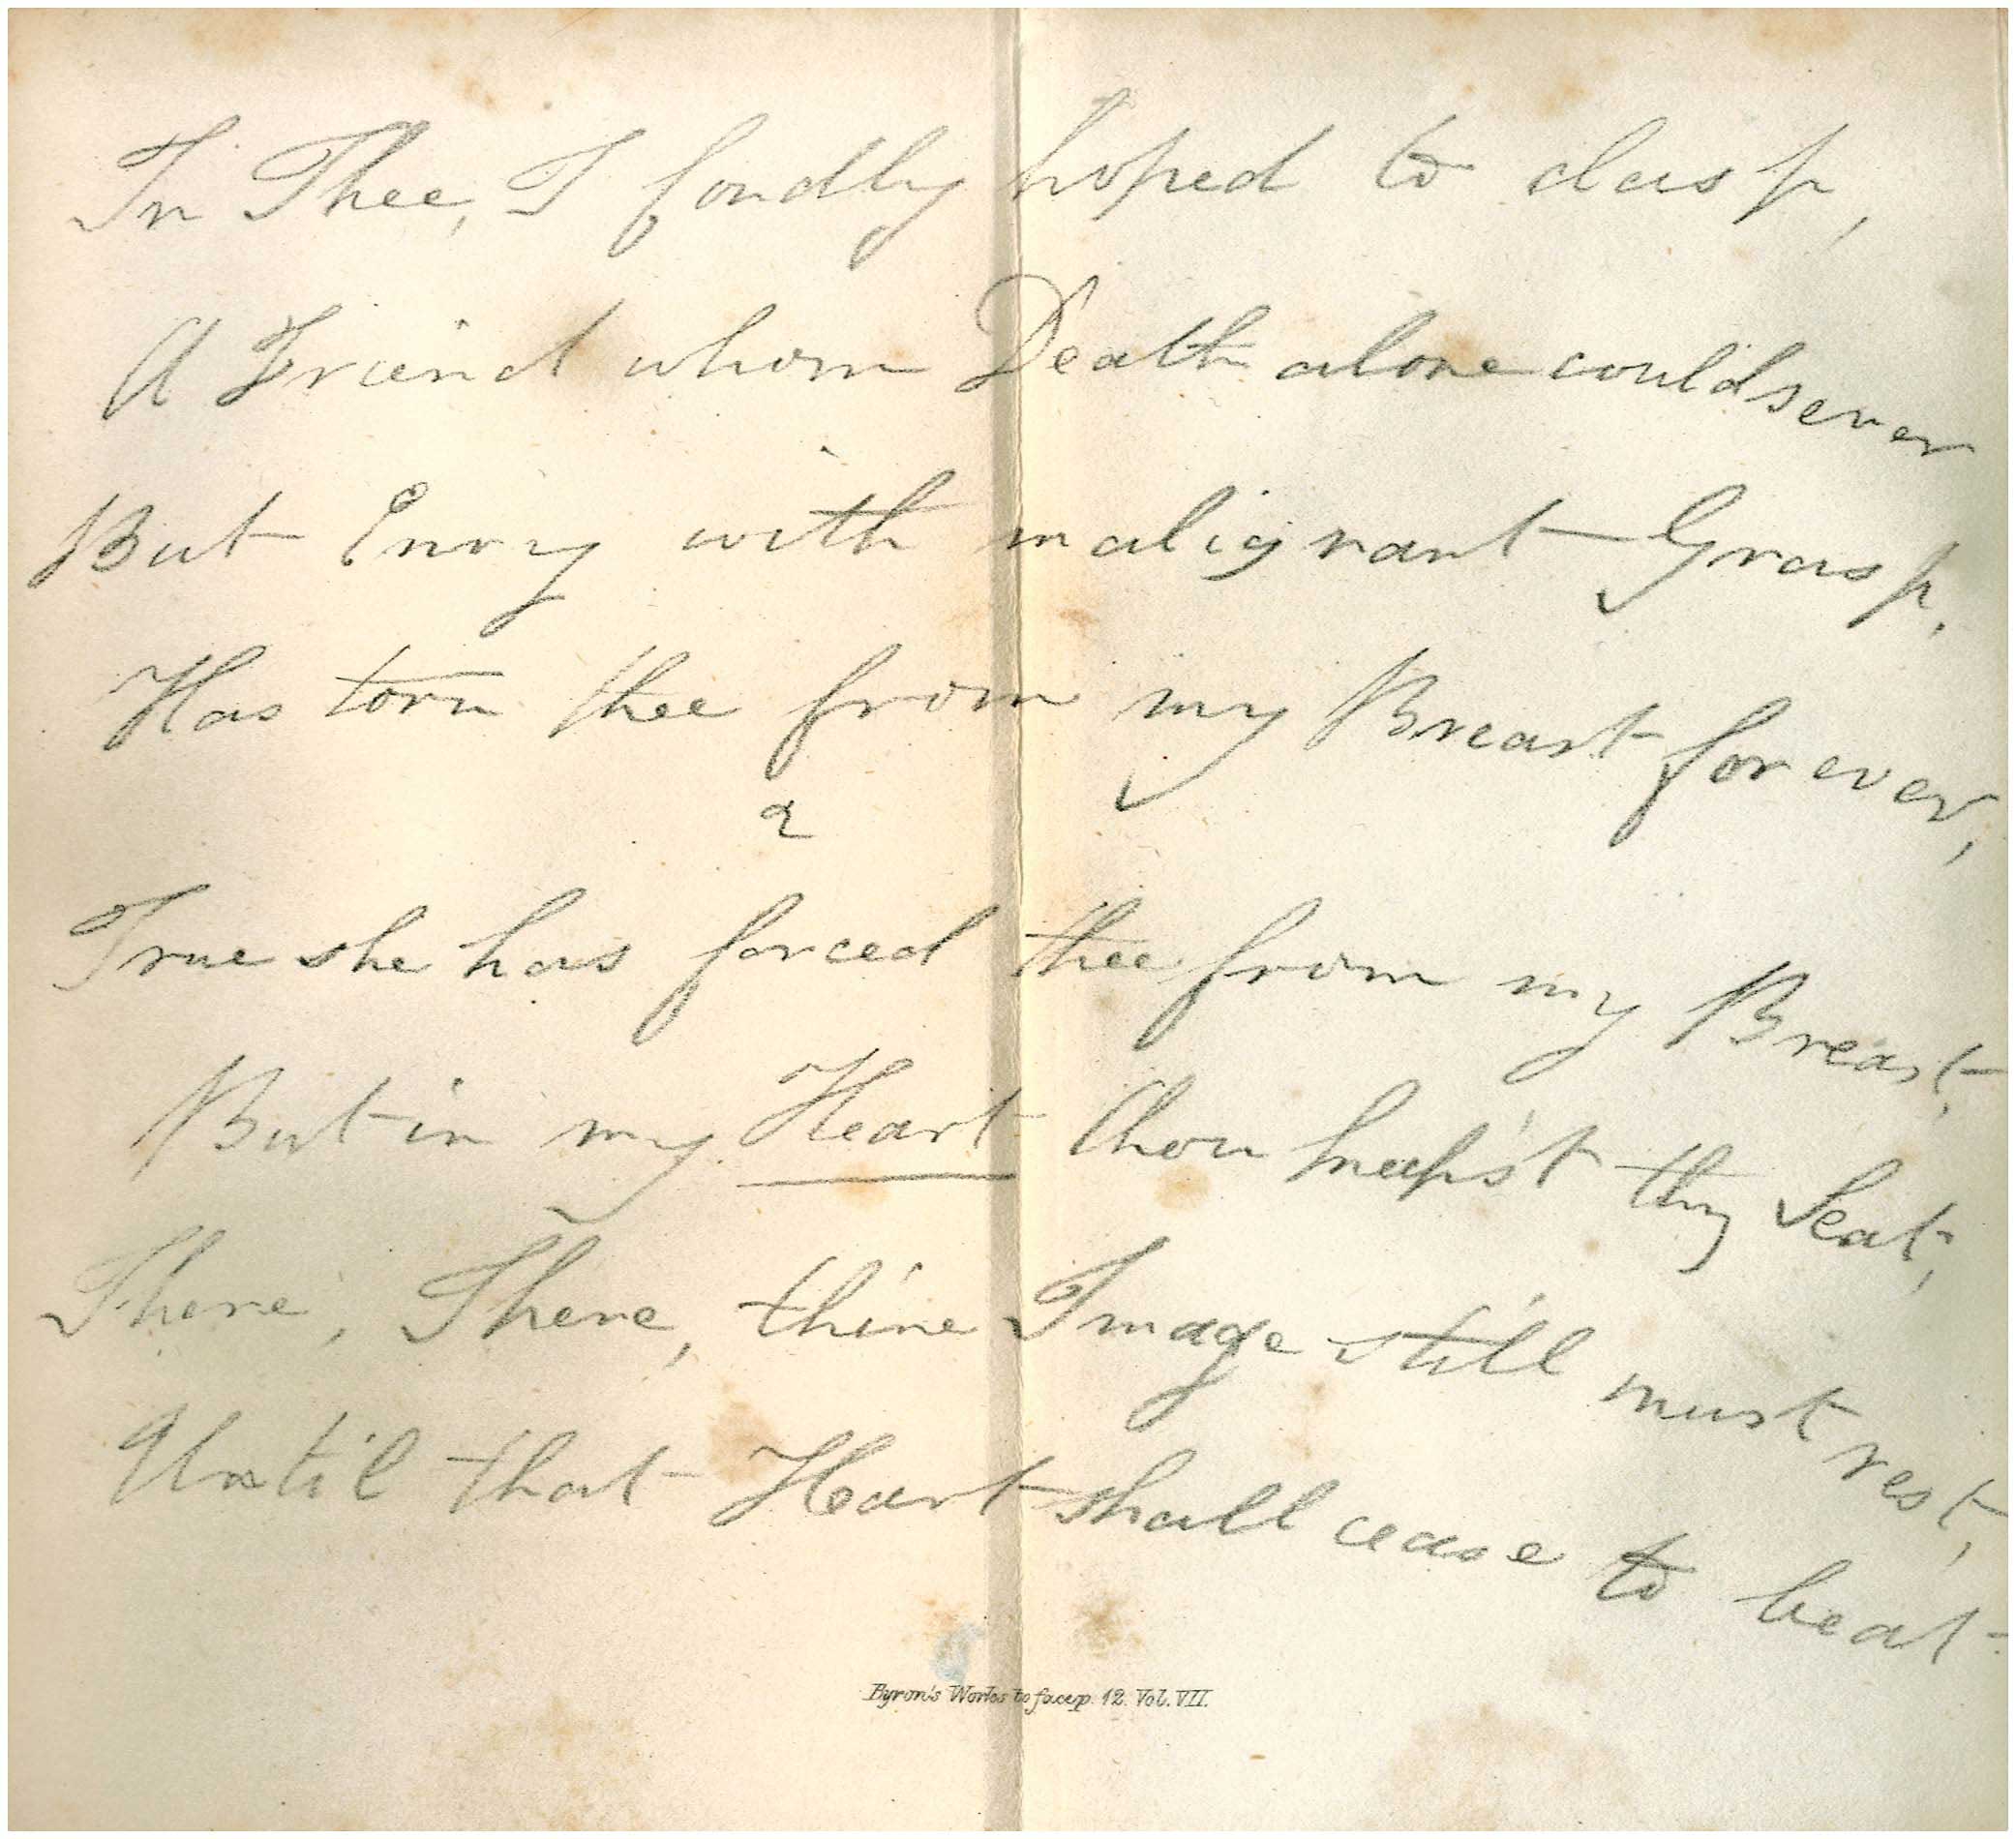 In Thee, I fondly hoped to clasp,
A Friend whom Death alone could sever
But Envy with malignant Grasp,
Has torn thee from my Breast for ever,
2
True she has forced thee from my Breast,
But in my Heart thou keep'st thy Seat,
There, There, thine Image still must rest,
Until that Heart shall cease to beat-
Byron's Works to face p. 12. Vol. VII.